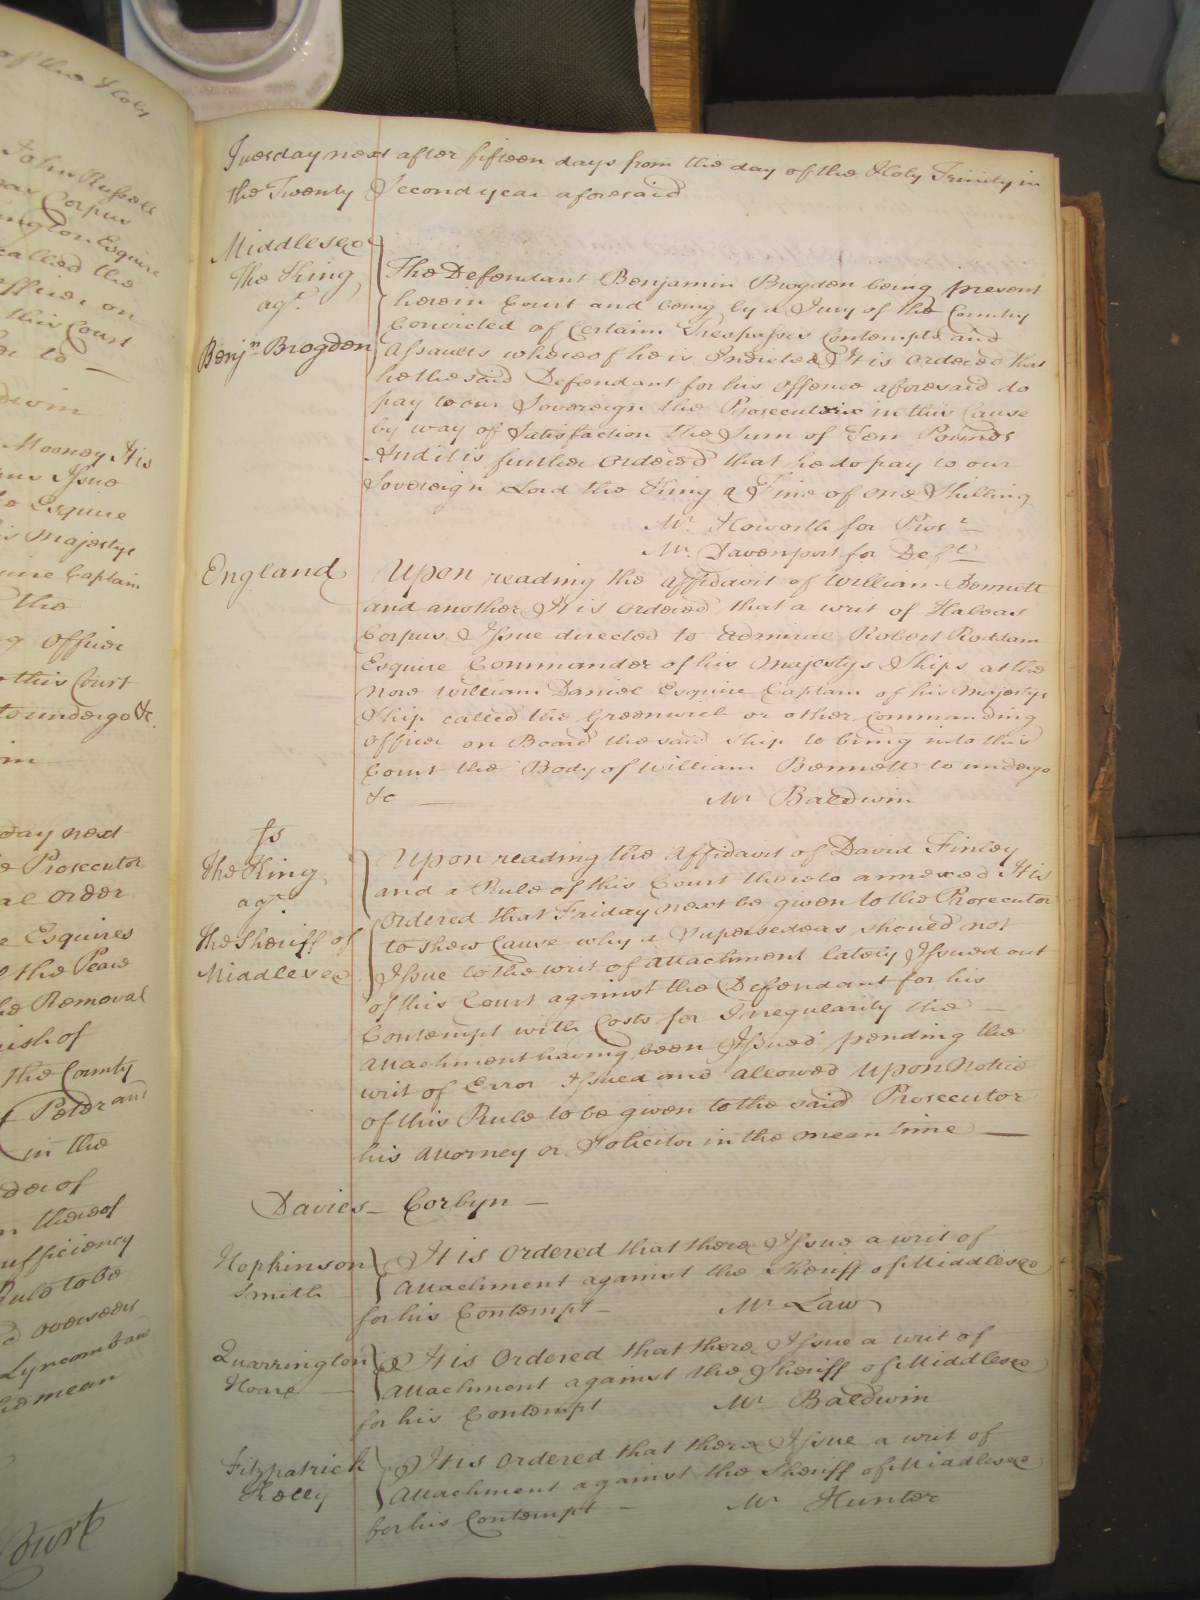 of the Holy
John Russell
Corpus
ington Esquire
called the
officer on
this Court
to
dwin
Mooney It is
Issue
Esquire
is Majestys
Captain
the
officer
this Court
to undergo &c.
day next
Prosecutor
al order
Esquires
the Peace
he Removal
ish of
the County
Peter and
in the
der of
thereof
ufficiency
Rule to be
overseers
Lyncomb and
mean
Court
Tuesday next after fifteen days from the day of the Holy Trinity in
the Twenty Second year aforesaid
Middlesex
The King
agt.
Benjn Brogden
The Defendant Benjamin Brogden being present
here in Court and being by a Jury of the Country
Convicted of Certain Trespasses Contempts and
Assaults whereof he is Indicted It is ordered that
he the said Defendant for his offence aforesaid do
pay to our Sovereign the Prosecutrix in this Cause
by way of Satisfaction the Sum of Ten Pounds
And it is further ordered that he do pay to our
Sovereign Lord the King a Fine of one Shilling
Mr. Howorth for Prosr
Mr. Davenport for Deft
England
Upon reading the affidavit of William Bennett
and another It is ordered that a writ of Habeas
Corpus Issue directed to Admiral Robert Roddam
Esquire Commander of his Majestys Ships at the
Nore William Daniel Esquire Captain of his Majestys
Ship called the Greenwich or other commanding
officer on Board the said Ship to bring into this
Court the Body of William Bennett to undergo
&c — Mr Baldwin
fs
The King
agt
The Sheriff of
Middlesex
Upon reading the Affidavit of David Finley
and a Rule of this Court thereto annexed It is
ordered that Friday next be given to the Prosecutor
to shew Cause why a Supersedeas should not
Issue to the writ of attachment lately Issued out
of this Court against the Defendant for his
Contempt with Costs for Irregularity the —
Attachment having been Issued pending the
writ of Error Issued and allowed Upon Notice
of this Rule to be given to the said Prosecutor
his Attorney or Solicitor in the mean time —
Davies — Corbyn —
Hopkinson
Smith
It is Ordered that there Issue a writ of
Attachment against the Sheriff of Middlesex
for his Contempt — Mr Law
Quarrington
Hoare —
It is Ordered that there Issue a writ of
Attachment against the Sheriff of Middlesex
for his Contempt Mr Baldwin
Fitzpatrick
Kelly
It is ordered that there Issue a writ of
Attachment against the Sheriff of Middlesex
for his Contempt — Mr Hunter